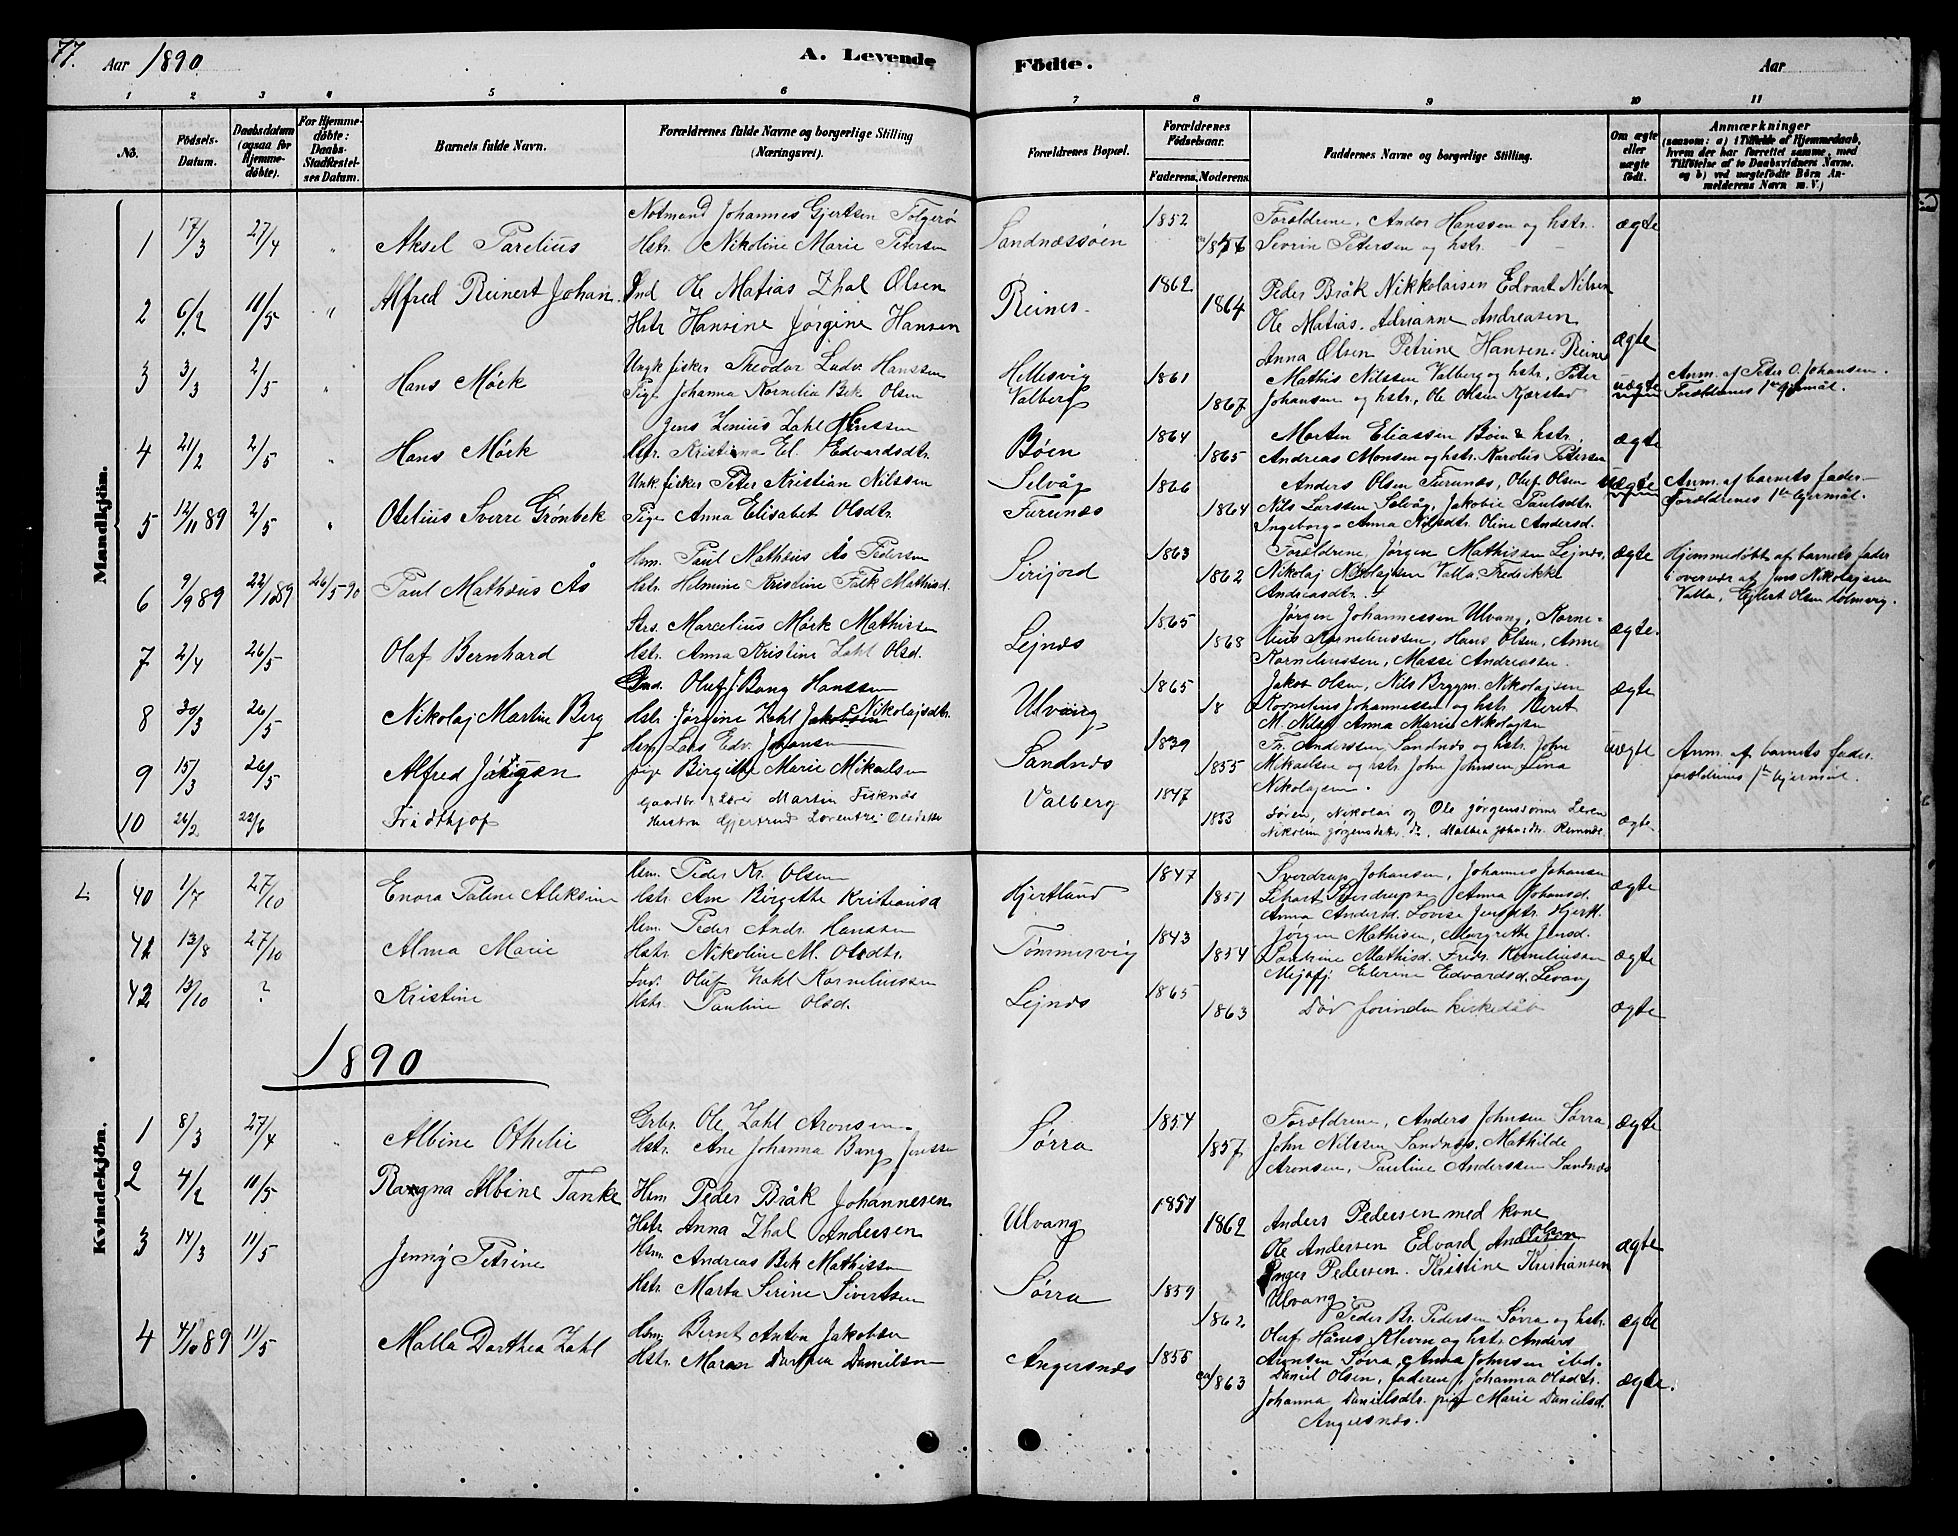 77.
Aar 1890
A. Levende
Födte.
Aar
1 2 3 4 5 6 7 8 9 10 11
No.
Födsels-Datum.
Daabsdatum (ogsaa for Hjemmedöbte).
For Hjemmedöbte: Daabs-Stadfæstelses Datum.
Barnets fulde Navn.
Forældrenes fulde Navne og borgerlige Stilling (Næringsvei).
Forældrenes Bopæl.
Forældrenes Födselsaar.
Faderens. Moderens.
Faddernes Navne og borgerlige Stilling.
Om ægte eller uægte födt.
Anmærkninger
(saasom: a) i Tilfælde af Hjemmedaab, hvem der har forrettet samme, med Tilföielse af to Daabsvidners Navne, og b) ved uægtefödte Börn Anmelderens Navn m. V.)
Mandkjön.
1 17/3 27/4 " Aksel Parelius
Notmand Johannes Gjertsen Tolgerø
Hstr. Nikoline Marie Petersen
Sandnæssøen 1852
Forældrene, Andor Hanssen og hstr.
Sevrin Petersen og hstr.
ægte
2 6/2 11/5 " Alfred Reinert Johan
Ind Ole Matias Zhal Olsen
Hstr Hansine Jørgine Hansen
Reines 1862 1864
Peder Bråk Nikkolaisen Edvart Nilsen
Ole Matias. Adrianne Andreasen
Anna Olsen Petrine Hansen. Reines
ægte
3 3/3 2/5 " Hans Mörk
Ungk fisker Theodor Ludv. Hanssen
Pige Johanna Kornelia Bek Olsen
Hellesvig
Valberg
1861 1867
Mathis Nilssen Valberg og hstr, Peter
Johansen og hstr, Ole Olsen Kjærstad
uægte
Anm. af Peter O. Johansen.
Forældrenes 1ste lejermål.
4 21/2 2/5 " Hans Mörk
Jens Zenius Zahl Hanssen
Hstr. Kristina El. Edvardsdtr.
Bøen 1864 1865
Morten Eliassen Bøen & hstr.
Andreas Monsen og hstr. Karolius Petersen
ægte
5 12/11 89 2/5 " Otelius Sverre Grønbek
Unk fisker Peter Kristian Nilssen
Pige Anna Elisabet Olsdtr.
Selvåg
Furunæs
1866 1864
Anders Olsen Furunæs, Oluf Olsen
Nils Larssen Selvåg, Jakobie Paulsdtr.
Ingeborg Anna Nilsdtr. Oline Andersd.
uægte
Anm. af barnets fader
Forældrenes 1ste lejermål.
6 9/9 89 22/10 89 26/5-90 Paul Mathæus Ås
Hsm. Paul Mathæus Ås Pedersen
Hstr. Helmine Kristine Falk Mathisd.
Sirijord 1863 1862
Forældrene, Jørgen Mathissen Lejnæs,
Nikolaj Nikolajsen Valla, Fredrikke
Andreasdtr.
ægte
Hjemmedøbt af barnets fader
i overvær af Jens Nikolajsen
Valla, Ejlert Olsen Holmvig.
7 2/4 26/5 Olaf Bernhard
Strs. Marcelius Mörk Mathissen
Hstr. Anna Kristine Zahl Olsd.
Lejnæs 1865 1868
Jørgen Johannessen Ulvang, Korne-
lius Korneliussen, Hans Olsen, Anne
Korneliussen, Massi Andreassen.
ægte.
8 30/3 26/5 Nikolaj Martin Berg
Ind. Oluf J Bang Hanssen
Hstr. Jørgine Zahl Jakobsen Nikolajsdtr.
Ulvang 1865 18
Jakob Olsen, Nils Brygm. Nikolajsen
Kornelius Johannessen og hstr Beret
M. Nils, Anna Marie Nikolajsen
ægte
9 15/3 26/5 Alfred Jørgen
Hsm Lars Edv. Johansen
pige Birgitte Marie Mikaelsen
Sandnæs 1839 1855
Fr. Anderssen, Sandnæs og hstr. John
Mikaelsen og hstr. John Johnsen, Lina
Nikolajsen.
uægte
Anm. af barnets fader.
forældrenes 1ste lejermål.
10 26/2 22/6 Fridthjof
Gaardbr. & Lærer Martin Fisknæs
Hustru Gjertrud Lorentze Olsdatter
Valberg 1847 1853
Søren, Nikolai og Ole Jørgenssønner Leven
Nikolin Jørgensdatter do, Mathea Johnsdtr. Remnæs.
ægte
Kvindekjön.
40 1/7 27/10 Enora Paline Aleksine
Hsm. Peder Kr. Olsen
Hstr. Ane Birgitte Kristiansd
Hjertland 1847 1851
Sverdrup Johansen, Johannes Johansen
Anna Johansd.
Anna Andersd. Lovise Jensdtr. Hjertl.
ægte
41 13/8 27/10 Alma Marie
Hsm. Peder Andr. Hanssen
Hstr. Nikoline M. Olsdtr.
Tømmervig 1843 1854
Jørgen Mathisen, Margrethe Jensd.
Sandrine Mathisd. Fredr. Korneliussen
Elerene Edvardsd. Levang
ægte
42 13/10 ? Kristine
Ind. Oluf Zahl Korneliussen
Hstr. Pauline Olsd.
Lejnæs 1865 1863
Død forinden kirkedåb
ægte
1890
1 8/3 27/4 " Albine Othelie
Grbr. Ole Zahl Aronsen
Hstr. Ane Johanna Bang Jenssen
Sørra 1854 1857
Forældrene, Anders Johnsen Sørra,
John Nilssen Sandnæs, Mathilde
Aronsen, Pauline Anderssen Sandnæs
ægte
2 4/2 11/5 Ragna Albine Tanke
Hsm Peder Bråk Johannesen
Hstr Anna Zhal Andersen
Ulvang 1851 1862
Anders Pedersen med kone
Ole Andersen Edvard Andersen Olsen
Inger Pedersen. Kristine Kristiansen
Ulvang.
ægte
3 14/3 11/5 Jenny Petrine
Hsm. Andreas Bek Mathissen
Hstr. Marta Serine Sivertsen
Sørra 1859 1862
Peder Br. Pedersen Sørra og hstr.
Oluf Hånes Alsven og hstr. Anders
Aronsen Sørra, Anna Johnsen ibd.
ægte
4 4/10 89 11/5 Malla Dorthea Zahl
Hsm. Bernt Anton Jakobsen
Hstr. Maren Dorthea Danielsen
Angersnæs 1855 ca 1863
Daniel Olsen, faderen, Johanna Olsdtr.
Johanna Danielsdtr. pige Marie Danielsd.
Angersnæs.
ægte.